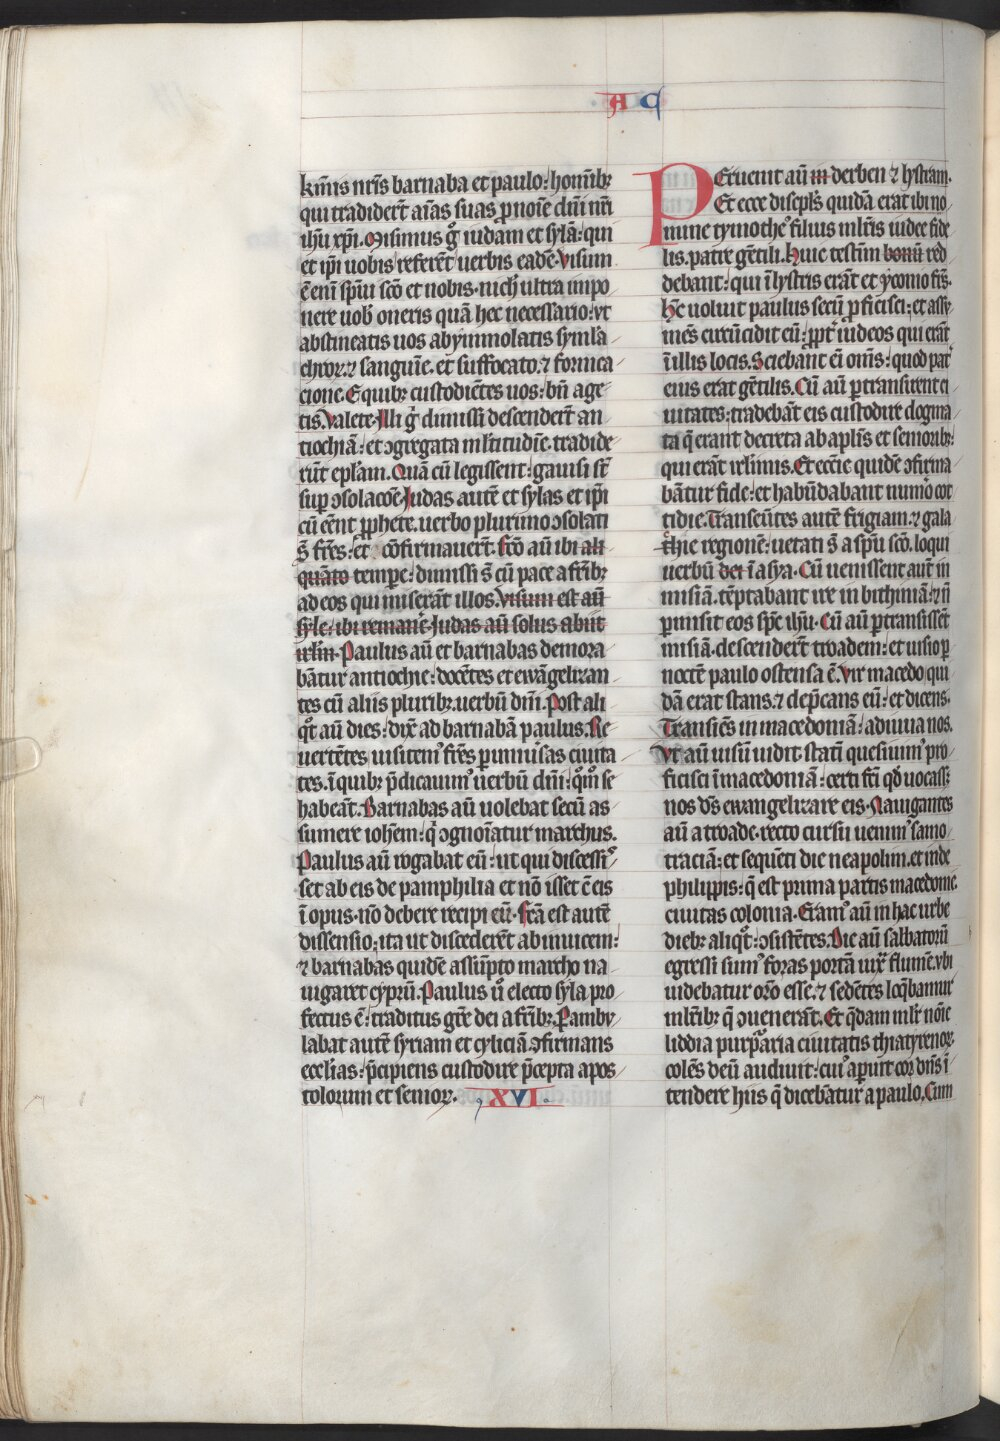 A C
kīnis nr̄is barnaba et paulo: homībꝫ
qui tradider̄t aīas suas ꝓ noīe dn̄i nr̄i
ih̄u xp̄i. Misimus g̊ iudam et sylā: qui
et ip̄i uobis referēt uerbis eadē. Visum
ē enī sp̄ui sc̄o et nobis. nich̄ ultra impo
nere uob̄ oneris quā hec necessario: vt
abstineatis uos ab ymmolatis symla
chroꝝ ⁊ sanguīe. et suffocato. ⁊ fornica
cione. E quibꝫ custodiētes uos: bn̄ age
tis. Valete. Illi g̊ dimissi descender̄t an
tiochiā: et ꝯgregata ml̄titudīe. tradide
rūt ep̄lam. Quā cū legissent: gauisi st̄
suꝑ ꝯsolacōe. Judas autē et sylas et ip̄i
cū eēnt ꝓph̄ete. uerbo plurimo ꝯsolati
s̄ fr̄es: et cōfirmauer̄t. Fc̄o aū ibi ali
quāto tempe: dimissi s̄ cū pace a fr̄ibꝫ
ad eos qui miserāt illos. Visum est aū
syle: ibi remanē. Judas aū solus abiit
irl̄m. Paulus aū et barnabas demora
bātur antiochie: docētes et ewāgelizan
tes cū aliis pluribꝫ. uerbū dn̄i. Post ali
qͦt aū dies: dix̄ ad barnabā paulus. Re
uertētes uisitemꝰ fr̄es ꝑ uniu̾sas ciuita
tes. ī quibꝫ p̄dicauimꝰ uerbū dn̄i: qͦmͦ se
habeāt. Barnabas aū uolebat secū as
sumere ioh̄em: qͥ ꝯgnoīatur marchus.
Paulus aū rogabat eū: ut qui discessi
set ab eis de pamphilia et nō isset c̄ eis
ī opus. nō debere recipi eū. Fc̄a est autē
dissensio: ita ut discederēt ab inuicem:
⁊ barnabas quidē assūpto marcho na
uigaret cyprū. Paulus u̾o electo syla pro
fectus ē: traditus gr̄e dei a fr̄ibꝫ. Ꝑambu
labat autē syriam et cyliciā ꝯfirmans
eccl̄ias: p̄cipiens custodire p̄cepta apos
tolorum et senioꝝ. XVI.
PEruenit aū in derben ⁊ lystram.
Et ecce discipl̄s quidā erat ibi no
mine tymotheꝰ filius ml̄ris iudee fide
lis. patre gētili. Huic testim̄ bonū red
debant: qui ī lystris erāt et yconio fr̄s.
Hc̄ uoluit paulus secū ꝓficisci: et assu
mēs circūcidit eū: ꝓpt̾ iudeos qui erāt
ī illis locis. Sciebant eī om̄s: quod pat̾
eius erat gētilis. Cū aū ꝑtransirent ci
uitates: tradebāt eis custodire dogma
ta q̄ erant decreta ab apl̄is et senioribꝫ:
qui erāt irl̄imis. Et ecc̄ie quidē ꝯfirma
bātur fide: et habūdabant num̾o cot
tidie. Transeūtes autē frigiam. ⁊ gala
thie regionē: uetati s̄ a sp̄u sc̄o. loqui
uerbū dei ī asya. Cū uenissent aut̄ in
misiā. tēptabant ire in bithiniā: ⁊ n̄
ꝑmisit eos sp̄c ih̄u. Cū aū ꝑtransissēt
misiā. descender̄t troadem: et uisio ꝑ
noctē paulo ostensa ē. Vir macedo qui
dā erat stans. ⁊ dep̄cans eū: et dicens.
Transiēs in macedoniā: adiuua nos.
Vt aū uisū uidit. statī quesiuimꝰ pro
ficisci ī macedoniā: certi fc̄i qd̄ uocass̄
nos dꝰs ewangelizare eis. Nauigantes
aū a troade. recto cursu uenimꝰ samo
traciā: et sequēti die neapolim. et inde
philippis: q̄ est prima partis macedonie
ciuitas colonia. Eramꝰ aū in hac urbe
diebꝫ aliqͦt: ꝯsistētes. Die aū sabbatorū
egressi sumꝰ foras portā iuxͣ flumē. vbi
uidebatur orō esse. ⁊ sedētes loq̄bamur
ml̄ribꝫ q̄ ꝯuenerāt. Et q̄dam ml̄r nōīe
liddia purpͣaria ciuitatis thiatyrenoꝝ.
colēs deū audiuit: cuiꝰ aperuit cor dn̄s ī
tendere hiis q̄ dicebātur a paulo. Cum